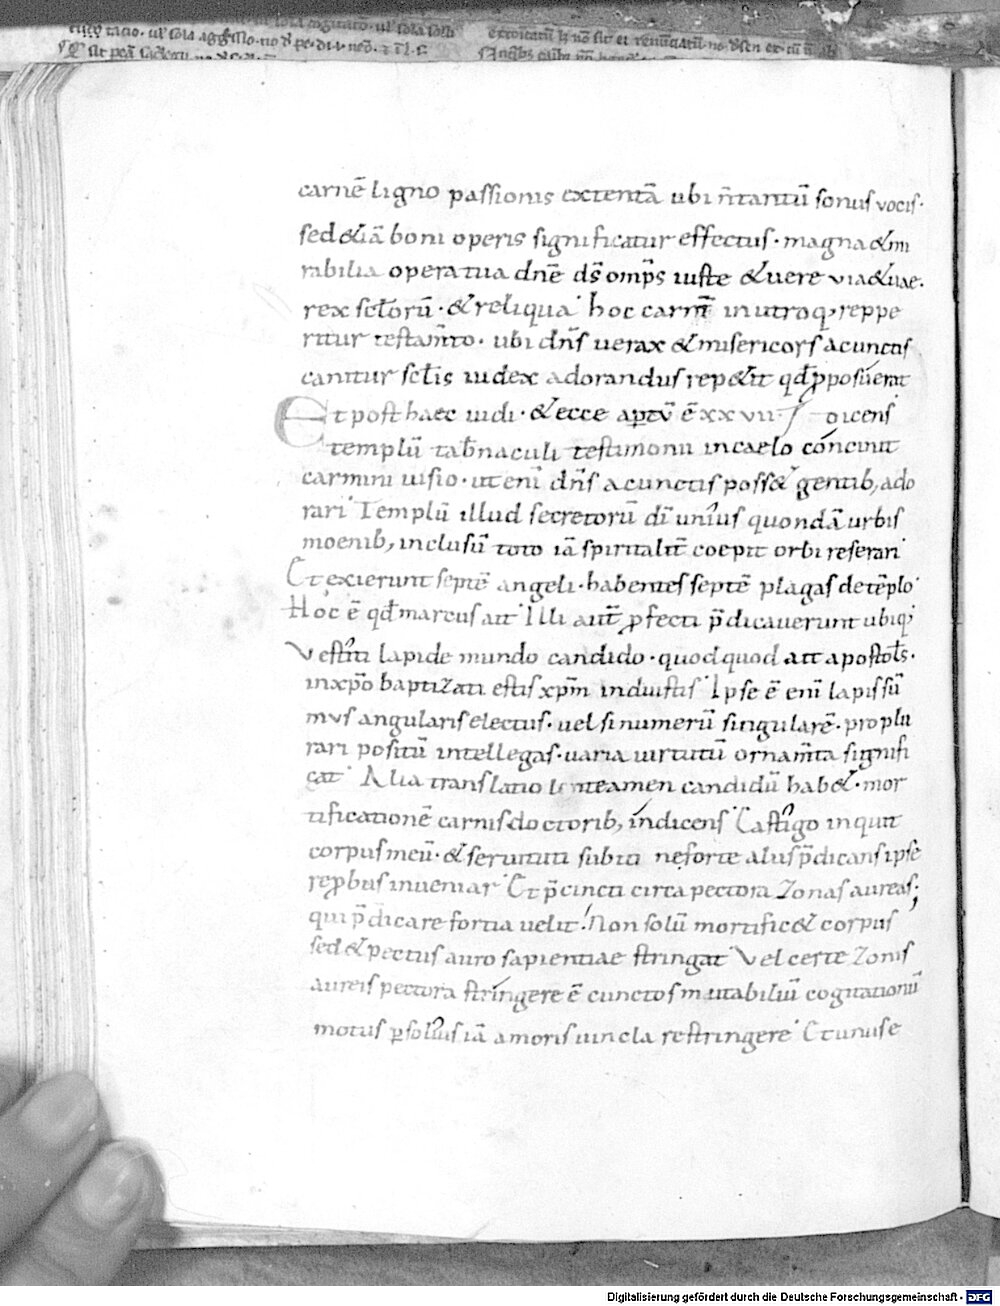 carnē ligno passionis extentā ubi n̄ tantū sonus vocis·
sed &iā boni operis significatur effectus· magna &mi
rabilia opera tua dnē ds̄ omp̄s iuste &uere via &uae·
rex sc̄torū· &reliqua hoc carm̄ in utroq· reppe
ritur testam̄to· ubi dn̄s uerax &misericors a cunctis
canitur sc̄tis iudex adorandus rep&it qd̄ pposuerat
Et post haec uidi· &ecce aptū ē xxvii dicens
templū tab̄naculi testimonii in caelo concinit
carmini uisio· ut enī dn̄s a cunctis poss& gentib, ado
rari Templū illud secretorū dī unius quondā urbis
moenib, inclusū toto iā spiritalit̄ coepit orbi referari
Et exierunt septē angeli· habentes septē plagas detēplo
Hoc ē qd̄ marcus ait Illi aut̄ pfecti p̄dicauerunt ubiq;
Vestiti lapide mundo candido· quod quod ait apostols̄·
in xp̄o baptizati estis xp̄m induistis Ipse ē enī lapis sū
mvs angularis electus· uel si numerū singularē· pro plu
rari positū intellegas· uaria uirtutū ornam̄ta signifi
cat Alia translatio linteamen candidū hab&· mor
tificationē carnis doctorib, indicens Castigo inquit
corpus meū· &seruituti subiti ne forte aliis p̄dicans ipse
repbus inueniar Et p̄cincti circa pectora Zonas aureas;
qui p̄dicare fortia uelit· Non solū mortific& corpus
sed &pectus auro sapientiae stringat Vel certe Zonis
aureis pectora stringere ē cunctos mutabiliū cogitationū
motus p solius iā amoris uincla restringere Et unus e
Digitalisierung gefördert durch die Deutsche Forschungsgemeinschaft - DFG